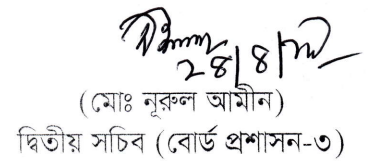 28/8/
(মোঃ নূরুল আমীন)
দ্বিতীয় সচিব (বোর্ড প্রশাসন-৩)